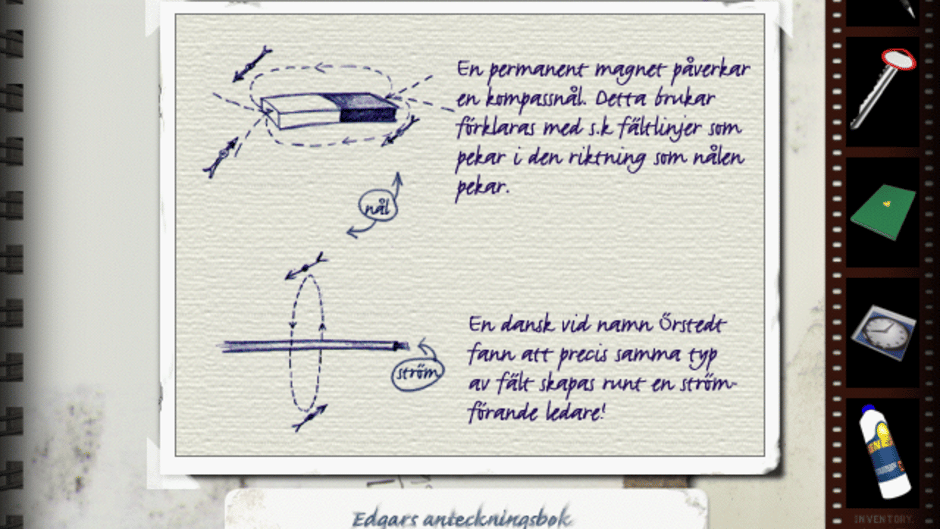 En permanent magnet påverkar
en kompassnål. Detta brukar
förklaras med s.k fältlinjer som
pekar i den riktning som nålen
pekar.
nål
ström
En dansk vid namn Örstedt
fann att precis samma typ
av fält skapas runt en ström-
förande ledare!
Edgars anteckningsbok
INVENTORY